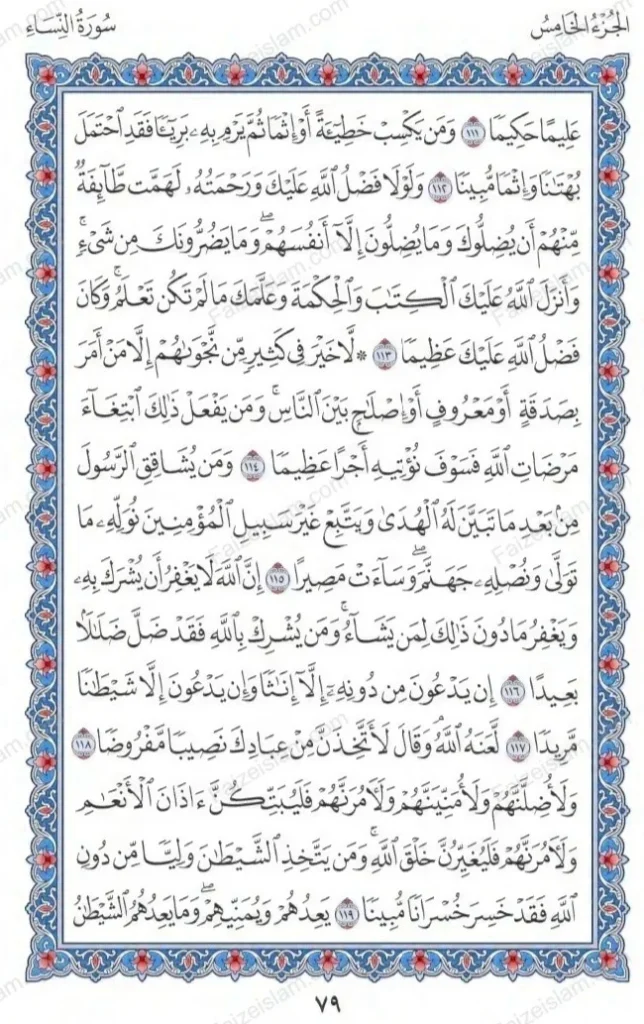 الجُزْءُ الخَامِسُ
سُورَةُ النِّسَاءِ
عَلِيمًا حَكِيمًا ١١١ وَمَن يَكْسِبْ خَطِيٓـَٔةً أَوْ إِثْمًا ثُمَّ يَرْمِ بِهِۦ بَرِيٓـًٔا فَقَدِ ٱحْتَمَلَ
بُهْتَٰنًا وَإِثْمًا مُّبِينًا ١١٢ وَلَوْلَا فَضْلُ ٱللَّهِ عَلَيْكَ وَرَحْمَتُهُۥ لَهَمَّت طَّآئِفَةٌ
مِّنْهُمْ أَن يُضِلُّوكَ وَمَا يُضِلُّونَ إِلَّآ أَنفُسَهُمْ ۖ وَمَا يَضُرُّونَكَ مِن شَىْءٍ ۚ
وَأَنزَلَ ٱللَّهُ عَلَيْكَ ٱلْكِتَٰبَ وَٱلْحِكْمَةَ وَعَلَّمَكَ مَا لَمْ تَكُن تَعْلَمُ ۚ وَكَانَ
فَضْلُ ٱللَّهِ عَلَيْكَ عَظِيمًا ١١٣ * لَّا خَيْرَ فِى كَثِيرٍ مِّن نَّجْوَىٰهُمْ إِلَّا مَنْ أَمَرَ
بِصَدَقَةٍ أَوْ مَعْرُوفٍ أَوْ إِصْلَٰحٍۭ بَيْنَ ٱلنَّاسِ ۚ وَمَن يَفْعَلْ ذَٰلِكَ ٱبْتِغَآءَ
مَرْضَاتِ ٱللَّهِ فَسَوْفَ نُؤْتِيهِ أَجْرًا عَظِيمًا ١١٤ وَمَن يُشَاقِقِ ٱلرَّسُولَ
مِنۢ بَعْدِ مَا تَبَيَّنَ لَهُ ٱلْهُدَىٰ وَيَتَّبِعْ غَيْرَ سَبِيلِ ٱلْمُؤْمِنِينَ نُوَلِّهِۦ مَا
تَوَلَّىٰ وَنُصْلِهِۦ جَهَنَّمَ ۖ وَسَآءَتْ مَصِيرًا ١١٥ إِنَّ ٱللَّهَ لَا يَغْفِرُ أَن يُشْرَكَ بِهِۦ
وَيَغْفِرُ مَا دُونَ ذَٰلِكَ لِمَن يَشَآءُ ۚ وَمَن يُشْرِكْ بِٱللَّهِ فَقَدْ ضَلَّ ضَلَٰلًۢا
بَعِيدًا ١١٦ إِن يَدْعُونَ مِن دُونِهِۦٓ إِلَّآ إِنَٰثًا وَإِن يَدْعُونَ إِلَّا شَيْطَٰنًا
مَّرِيدًا ١١٧ لَّعَنَهُ ٱللَّهُ ۘ وَقَالَ لَأَتَّخِذَنَّ مِنْ عِبَادِكَ نَصِيبًا مَّفْرُوضًا ١١٨
وَلَأُضِلَّنَّهُمْ وَلَأُمَنِّيَنَّهُمْ وَلَءَامُرَنَّهُمْ فَلَيُبَتِّكُنَّ ءَاذَانَ ٱلْأَنْعَٰمِ
وَلَءَامُرَنَّهُمْ فَلَيُغَيِّرُنَّ خَلْقَ ٱللَّهِ ۚ وَمَن يَتَّخِذِ ٱلشَّيْطَٰنَ وَلِيًّا مِّن دُونِ
ٱللَّهِ فَقَدْ خَسِرَ خُسْرَانًا مُّبِينًا ١١٩ يَعِدُهُمْ وَيُمَنِّيهِمْ ۖ وَمَا يَعِدُهُمُ ٱلشَّيْطَٰنُ
٧٩
Faizeislam.com